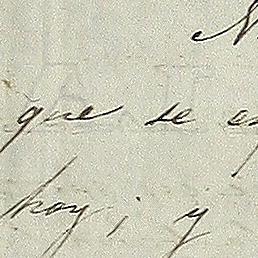 que se
hoy; y